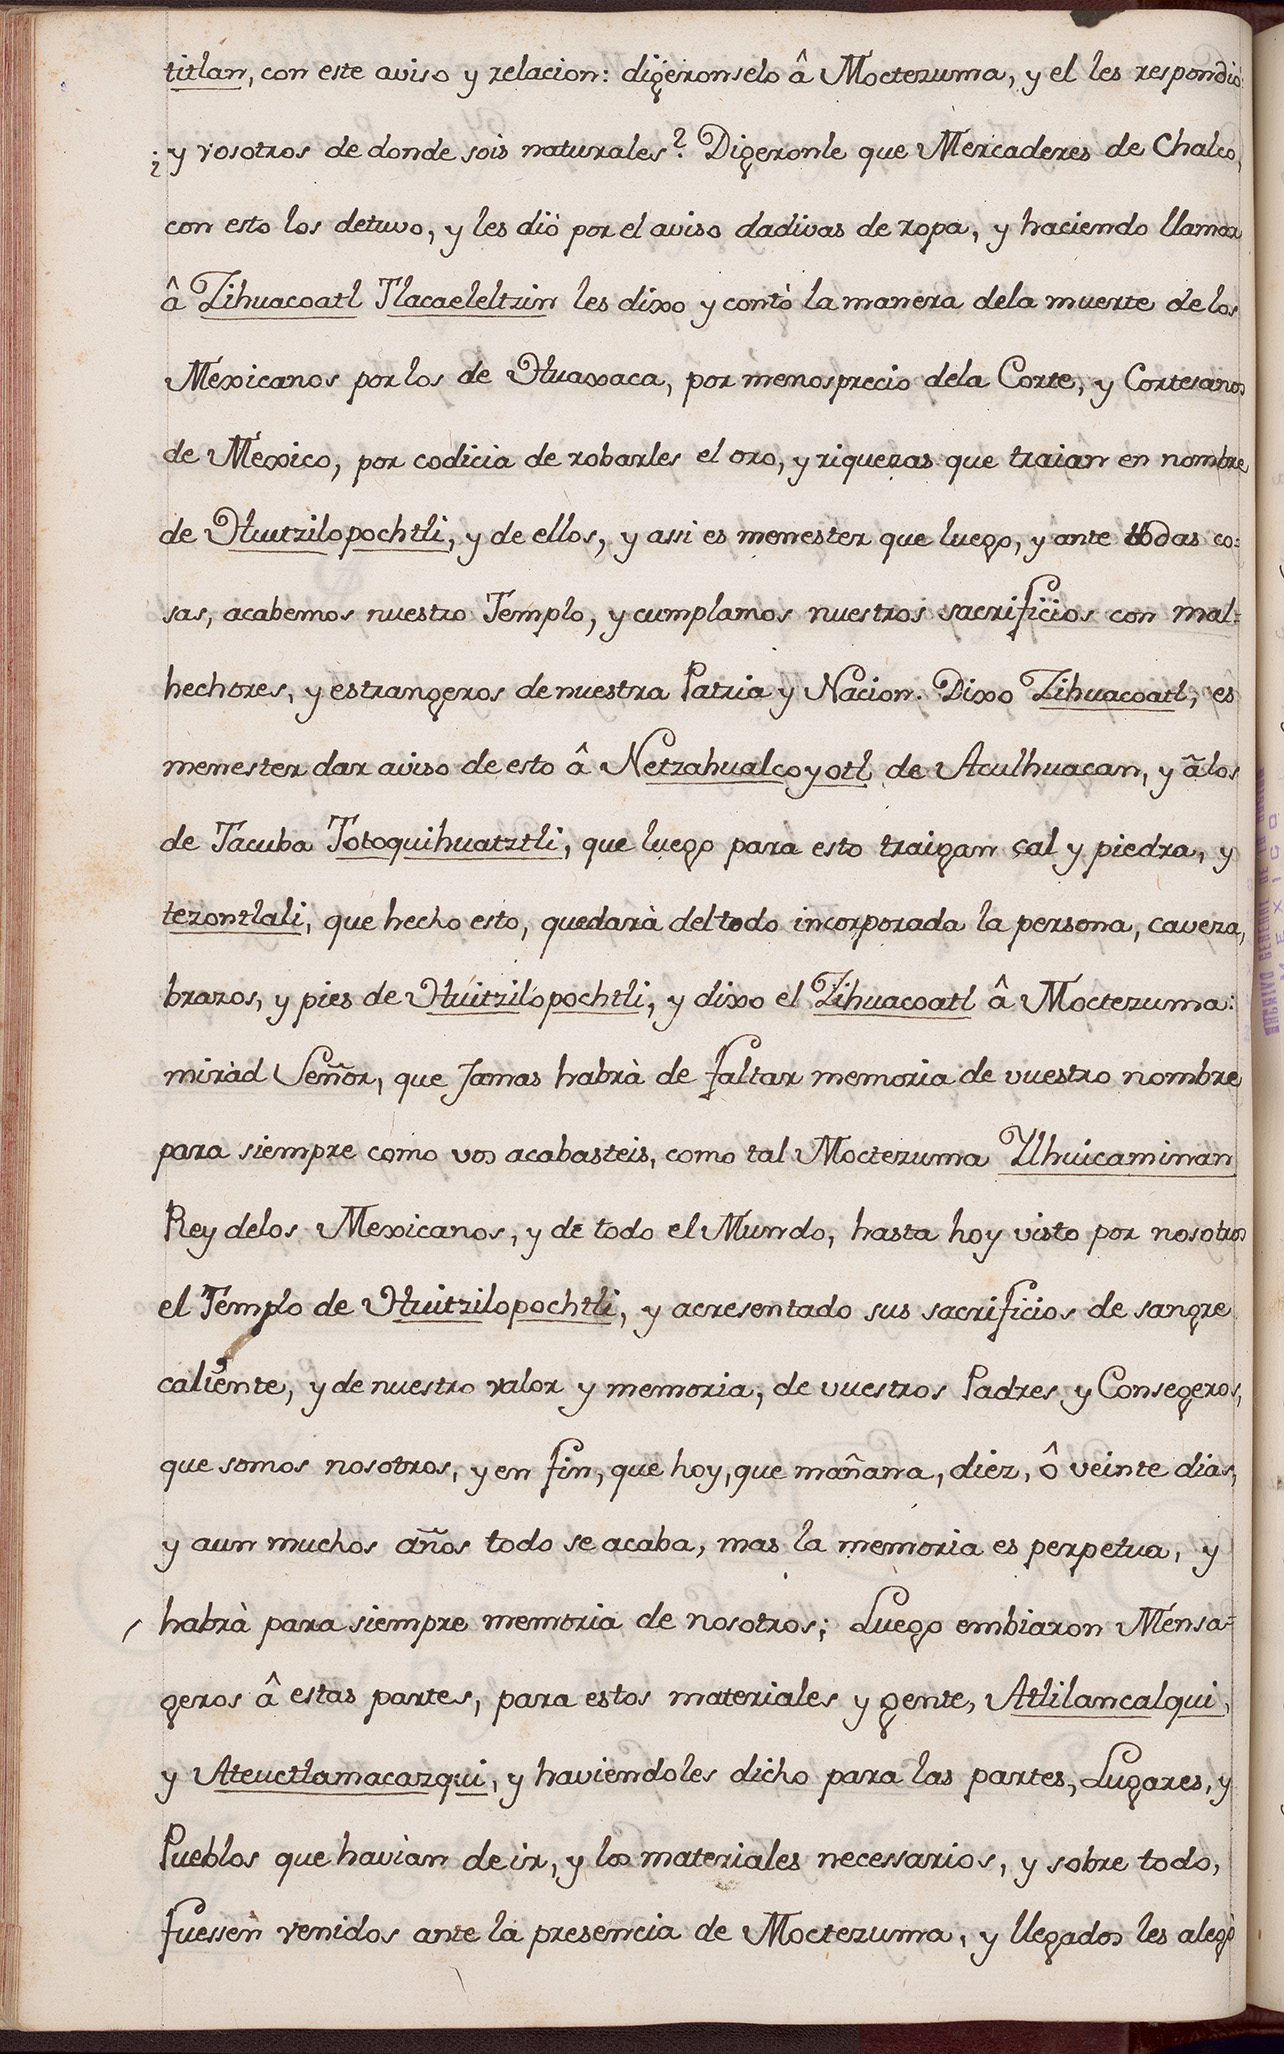 titlan, con este aviso y relacion: digeronselo â Moctezuma, y el les respondiò:
¿y vosotros de donde sois naturales? Digeronle que Mercaderes de Chalco,
con esto los detuvo, y les diò por el aviso dadivas de ropa, y haciendo llamar
â Zihuacoatl Tlacaeleltzin les dixo y contò la manera dela muerte de los
Mexicanos por los de Huaxaca, por menosprecio dela Corte, y Cortesanos
de Mexico, por codicia de robarles el oro, y riquezas que traian en nombre
de Huitzilopochtli, y de ellos, y assi es menester que luego, y ante todas co=
sas, acabemos nuestro Templo, y cumplamos nuestros sacrificios con mal=
hechores, y estrangeros de nuestra Patria y Nacion. Dixo Zihuacoatl, es
menester dar aviso de esto â Netzahualcoyotl de Aculhuacan, y â los
de Tacuba Totoquihuatztli, que luego para esto traigan cal y piedra, y
tezontlali, que hecho esto, quedarà del todo incorporada la persona, caveza,
brazos, y pies de Huitzilopochtli, y dixo el Zihuacoatl â Moctezuma:
miràd Señor, que Jamas habrà de faltar memoria de vuestro nombre
para siempre como vos acabasteis, como tal Moctezuma Ylhuicaminan
Rey delos Mexicanos, y de todo el Mundo, hasta hoy visto por nosotros
el Templo de Huitzilopochtli, y acresentado sus sacrificios de sangre
caliente, y de nuestro valor y memoria, de vuestros Padres y Consegeros,
que somos nosotros, y en fin, que hoy, que mañana, diez, ô veinte dias,
y aun muchos años todo se acaba, mas la memoria es perpetua, y
habrà para siempre memoria de nosotros; Luego embiaron Mensa=
geros â estas partes, para estos materiales y gente, Atlilancalqui,
y Ateuctlamacazqui, y haviendoles dicho para las partes, Lugares, y
Pueblos que havian de ir, y los materiales necessarios, y sobre todo,
fuessen venidos ante la presencia de Moctezuma, y llegados les alegò